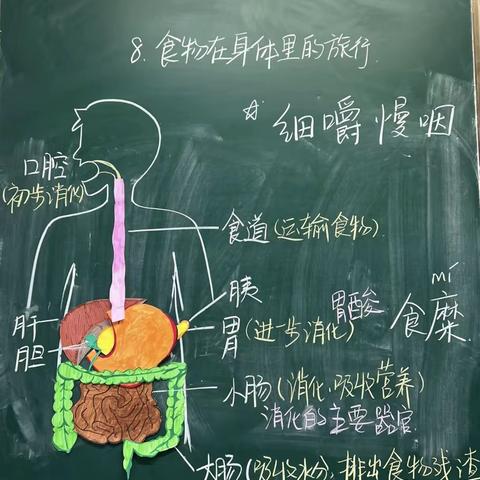 8. 食物在身体里的旅行
☆ 细嚼慢咽
口腔
(初步消化)
食道(运输食物)
胰
胃酸
mí
食糜
肝
胃(进一步消化)
胆
小肠(消化.吸收营养)
消化的主要器官
大肠(吸收水分,排出食物残渣